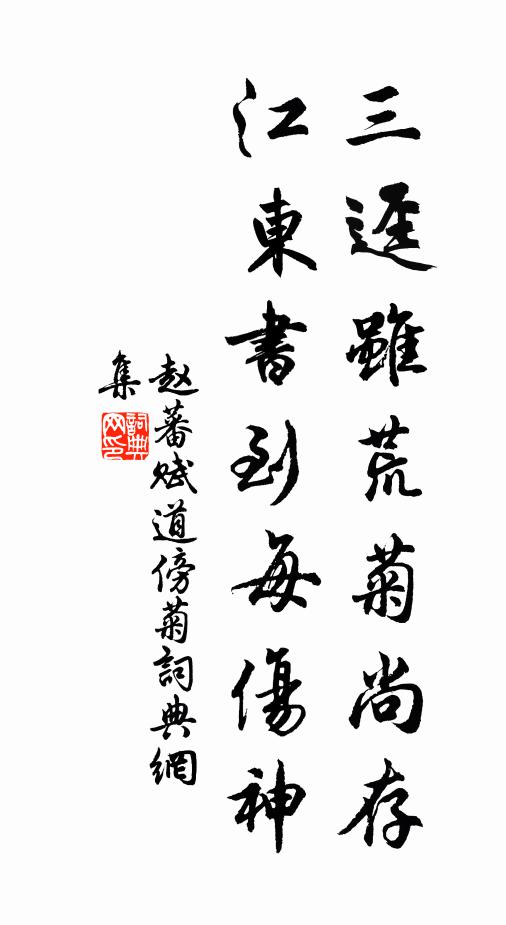 三逕雖荒菊尚存
江東書到每傷神
赵蕃赋道傍菊詞典網
集
詞典网印